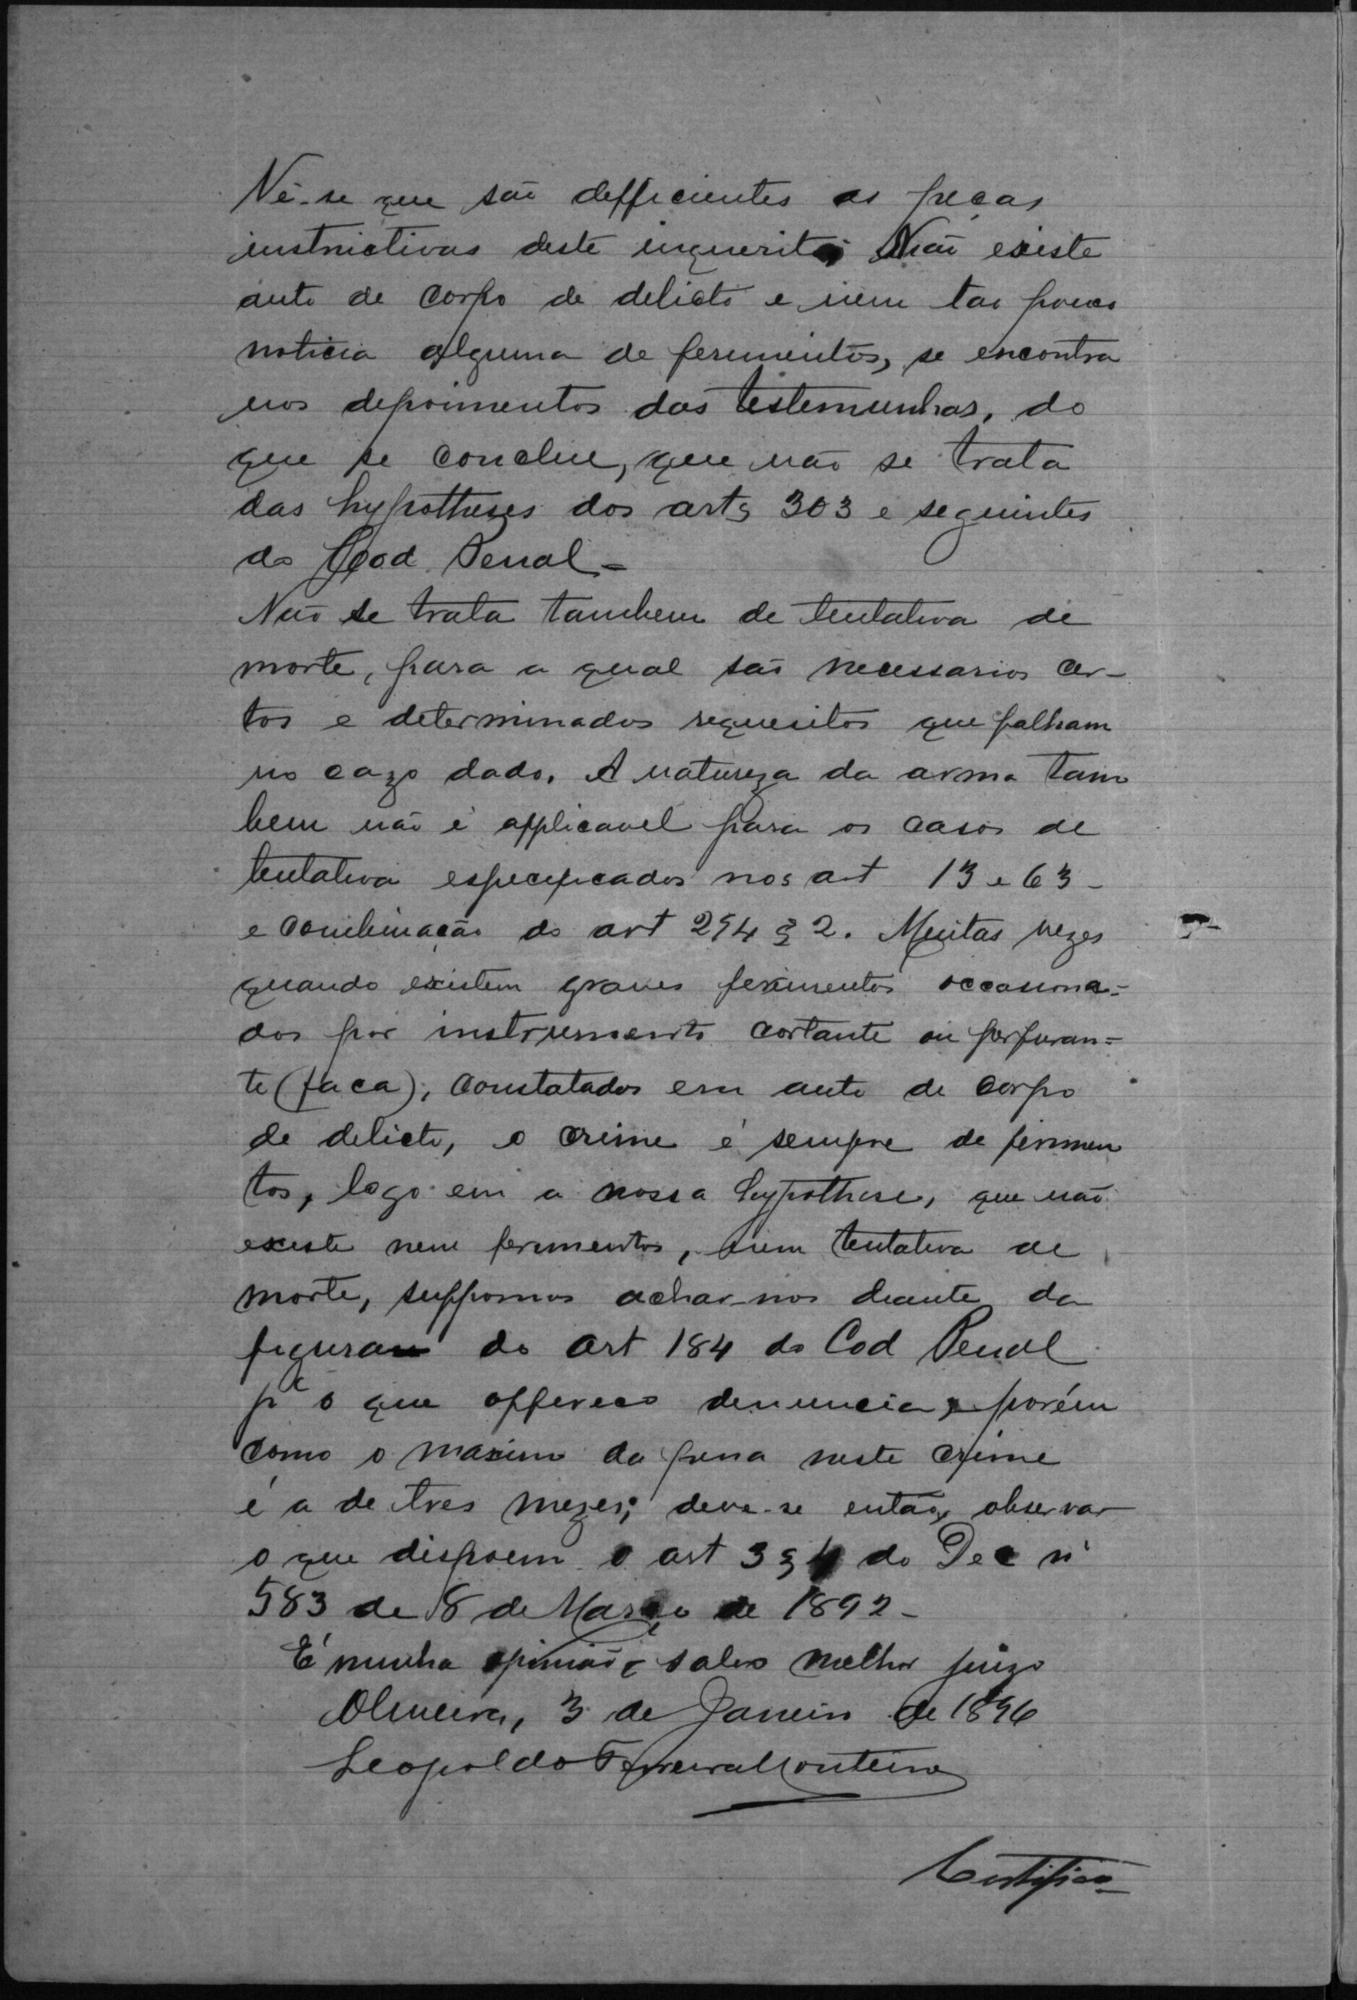 Vê-se que são defficientes as peças
instructivas deste inquerito; Não existe
auto de corpo de delicto e nem tao pouco
noticia alguma de ferimentos, se encontra
nos depoimentos das testemunhas, do
que se conclue, que não se trata
das hypotheses dos arts 303 e seguintes
do Cod. Penal -
Não se trata tambem de tentativa de
morte, para a qual são necessarios cer-
tos e determinados requesitos que falham
no cazo dado. A natureza da arma tam
bem não é applicavel para os casos de
tentativa especificados nos art 13 e 63 -
e combinação do art 294 § 2. Muitas vezes
quando existem graves ferimentos occasiona=
dos por instrumento cortante ou perfuran=
te (faca), constatados em auto de corpo
de delicto, o crime é sempre de ferimen
tos, logo em a nossa hypothese, que não
existe nem ferimentos, nem tentativa de
morte, suppomos achar-nos deante da
figura do art 184 do Cod Penal
pº o que offereco denuncia, porém
como o maximo da pena neste crime
é a de tres mezes; deve-se então, observar
o que dispoem o art 3 § 4 do Dec nº
583 de 8 de Março de 1892 -
É minha opinião, salvo melhor juizo
Oliveira, 3 de Janeiro de 1896
Leopoldo Ferreira Monteiro
Certifico -